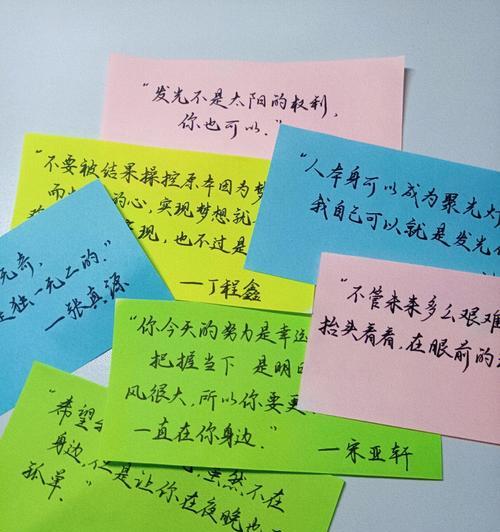 "发光不是太阳的权利,
你也可以."
"不要被结果操控原本因为梦
而
的心,实现梦想就
现,也不过是
—丁程鑫
"人本身可以成为聚光灯
我自己可以就是发光
无奇,
独一无二的."
—张真源
"不管未来多么艰难
抬头看看,在眼前的
"你今天的努力是幸运
把握当下 是明日
风很大,所以你要更
一直在你身边."
—宋亚轩
"希望
身边,但是让你在夜晚也不
虽然不在
孤单."